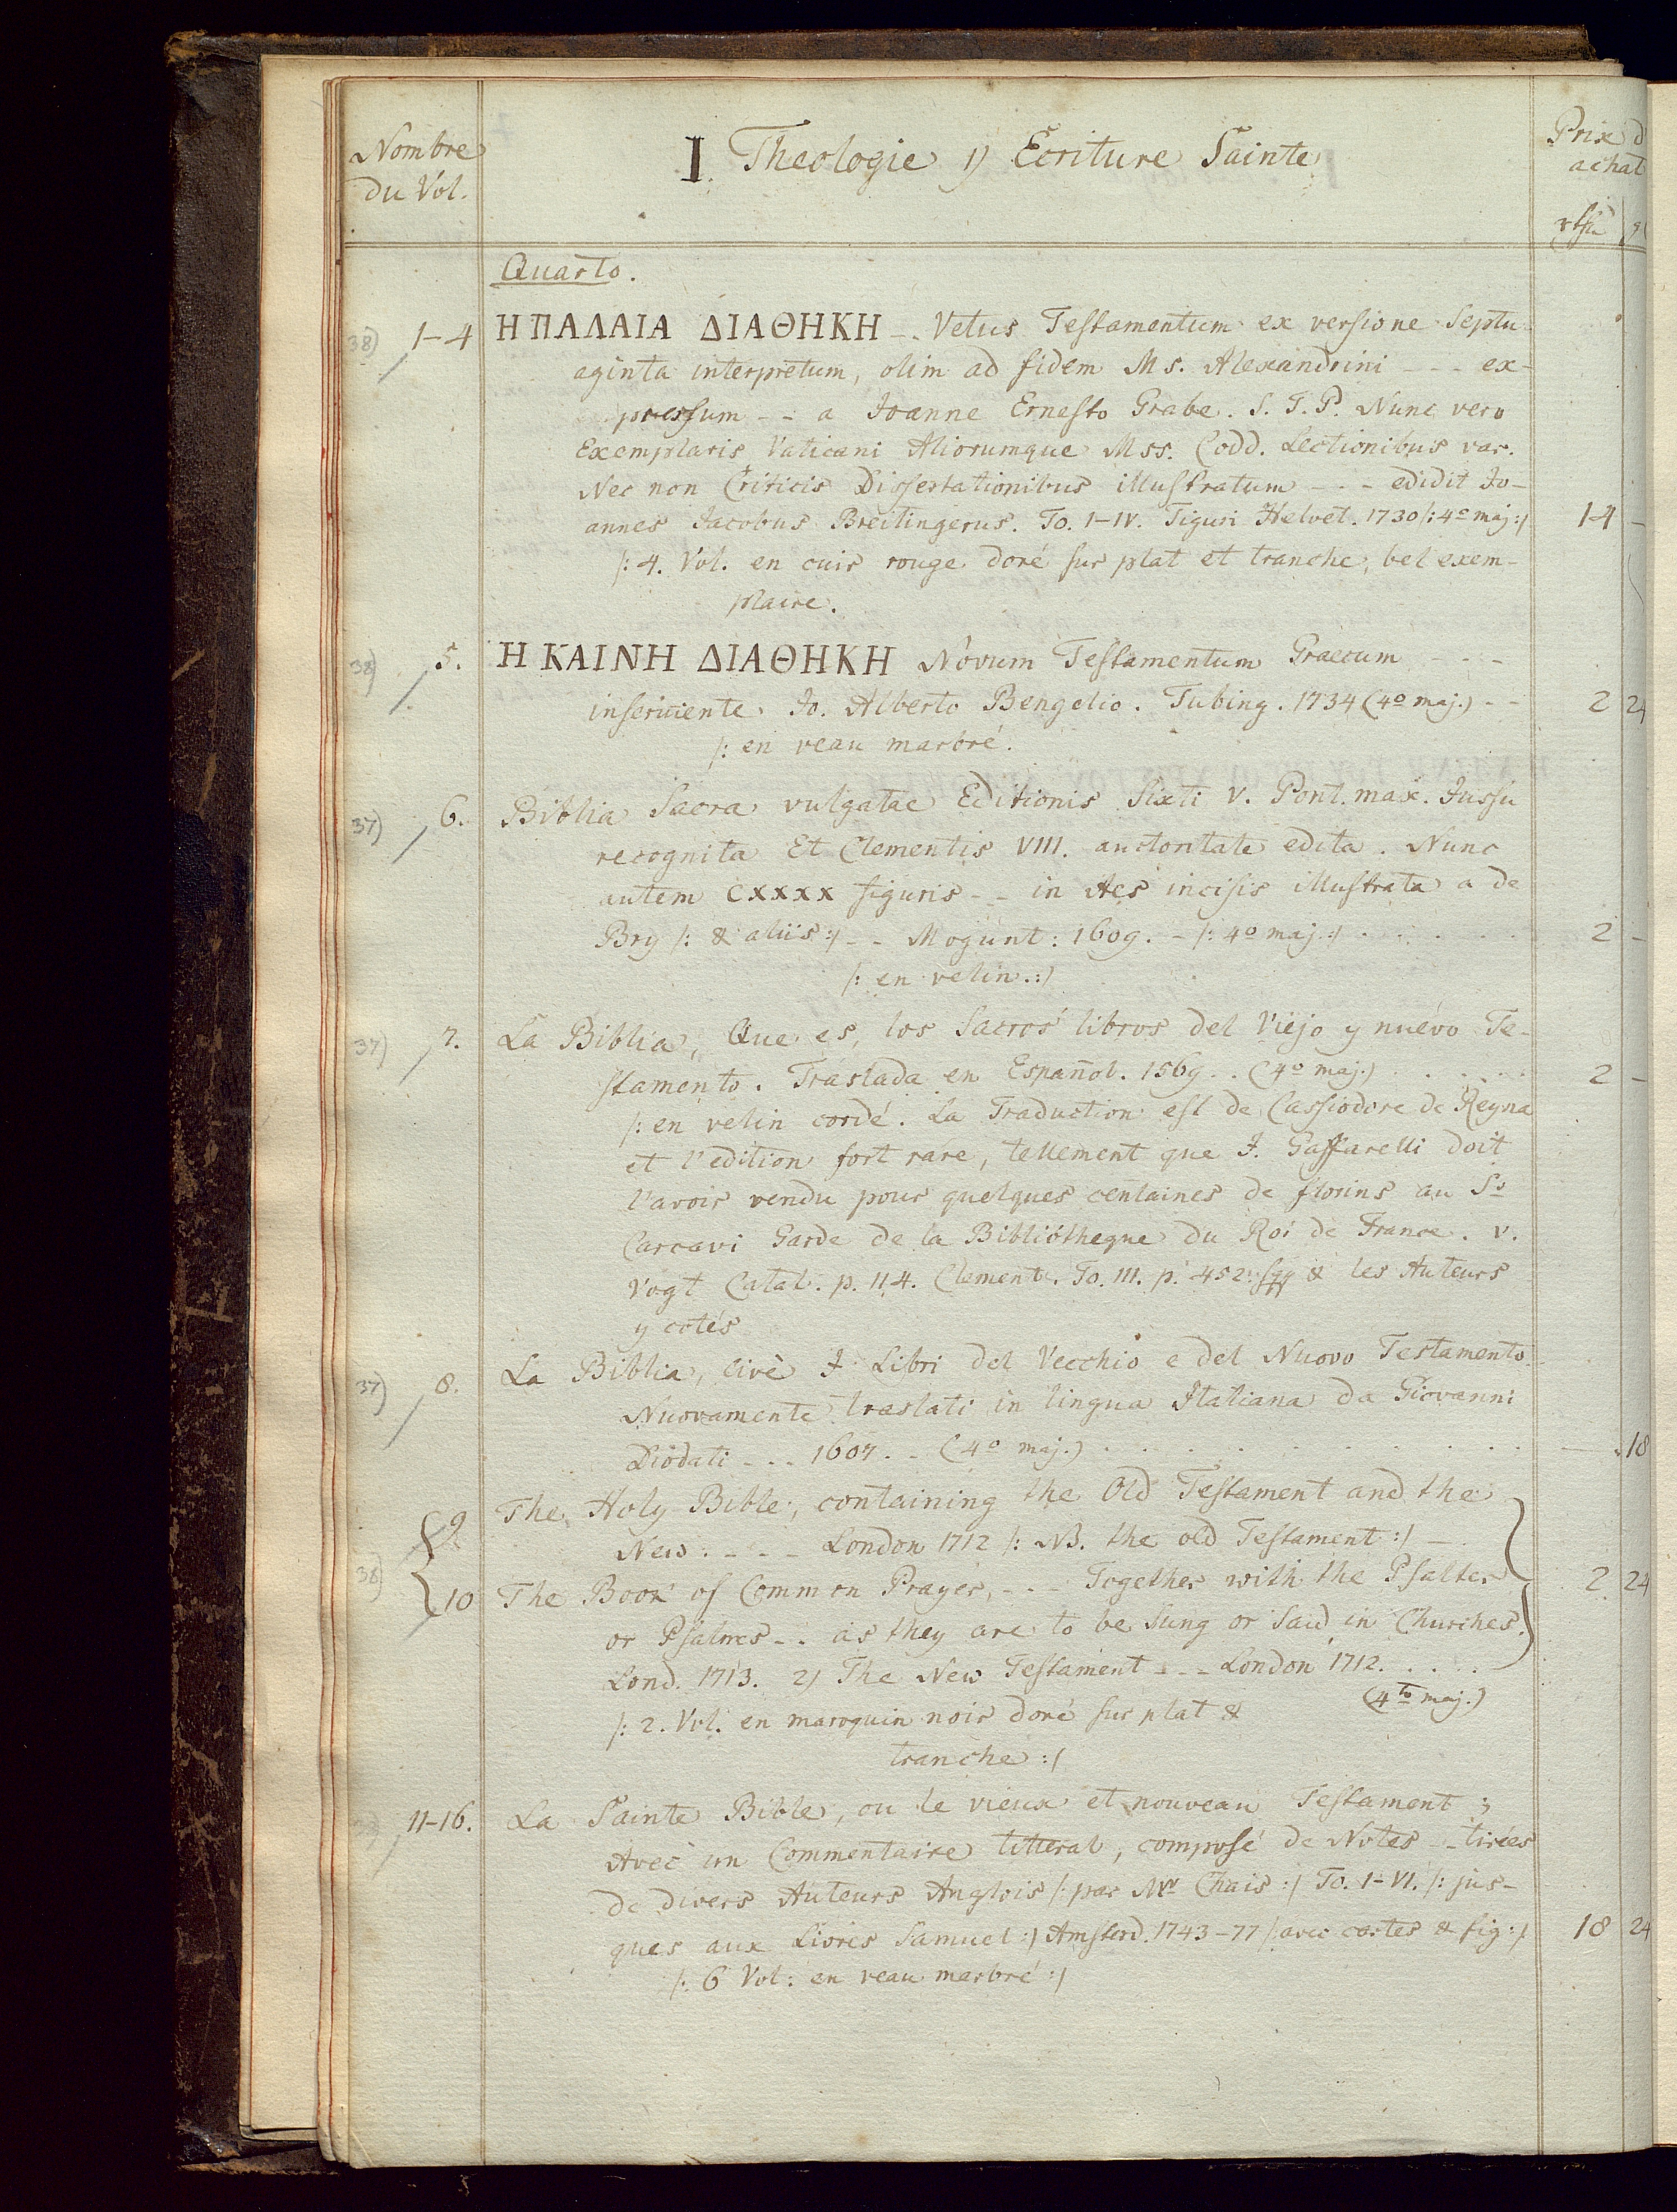 Nombre
du Vol.
I. Theologie 1) Ecriture Sainte
Prix d
achat
Quarto.
38) 1-4 Η ΠΑΛΑΙΑ ΔΙΑΘΗΚΗ -. Vetus Testamentum ex versione Septu-
aginta interpretum, olim ad fidem Ms. Alexandrini - - - ex-
pressum - - a Joanne Ernesto Grabe. S. T. P. Nunc vero
Exemplaris Vaticani Aliorumque Mss. Codd. Lectionibus var.
Nec non Criticis Dissertationibus illustratum - - - edidit Jo-
annes Jacobus Breitingerus. To. I-IV. Tiguri Helvet. 1730 /: 4º maj :/ 14 -
/: 4. Vol. en cuir rouge doré sur plat et tranche, bel exem-
plaire.
38) 5. Η ΚΑΙΝΗ ΔΙΑΘΗΚΗ Novum Testamentum Graecum - - -
inserviente Jo. Alberto Bengelio. Tubing. 1734 (4º maj.) - - 2 24
/: en veau marbré.
37) 6. Biblia Sacra vulgatae Editionis Sixti V. Pont. max. Jussu
recognita Et Clementis VIII. auctoritate edita. Nunc
autem CXXXX figuris - - in Aes incisis illustrata a de
Bry /: & aliis :/ - - Mogunt: 1609. - /: 4º maj. :/ . . . . . 2 -
/: en velin. :/
37) 7. La Biblia, Que es, los Sacros libros del Viejo y nuévo Te-
stamento. Traslada en Español. 1569. . (4º maj.) . . . . . 2 -
/: en velin cordé. La Traduction est de Cassiodore de Reyna
et l'edition fort rare, tellement que J. Gaffarelli doit
l'avoir vendu pour quelques centaines de florins au Sr
Carcavi Garde de la Bibliótheque du Roi de France. v.
Vogt Catal. p. 114. Clement. To. III. p. 452. sqq & les Auteurs
y cotés
37) 8. La Biblia, civè I Libri del Vecchio e del Nuovo Testamento.
Nuovamente traslati in lingua Italiana da Giovanni
Diodati - - - 1607. - (4º maj.) . . . . . . . . . . - 18
9. The Holy Bible, containing the Old Testament and the
New. - - - London 1712 /: NB. the old Testament :/ -
38) 10 The Book of Common Prayer, - - - Together with the Psalter 2 24
or Psalmes - . as they are to be Sung or Said in Churches.
Lond. 1713. 2) The New Testament - - - London 1712. . . . .
(4to maj.)
/: 2. Vol. en maroquin noir doré sur plat &
tranche :/
11-16. La Sainte Bible, ou le vieux et nouveau Testament;
Avec un Commentaire litteral, composé de Notes - - tirées
de divers Auteurs Anglois /: par Mr Chais :/ To. I-VI. /: jus-
ques aux Livres Samuel :/ Amsterd. 1743-77 /: avec cartes & fig :/ 18 24
/: 6 Vol: en veau marbré :/